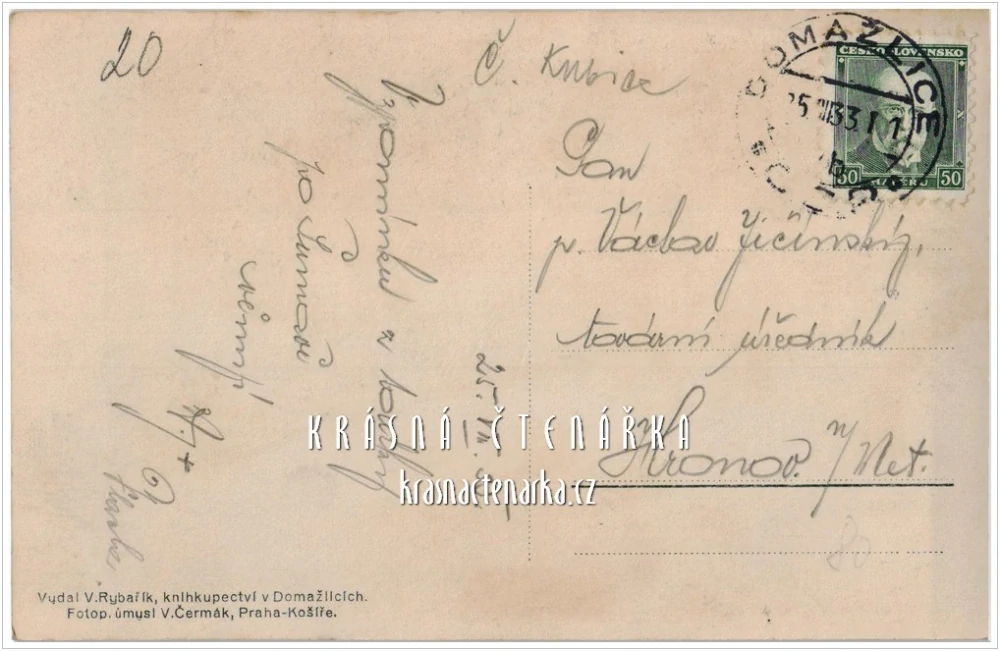 20
Č. Kubice
DOMAŽLICE
ČESKOSLOVENSKO
50 HALÉŘŮ 50
Pan
p. Václav Jičínský,
tovární úředník
Hronov n/Met.
Vzpomínku z toulky
po Šumavě
25. VII.
80
KRÁSNÁ ČTENÁŘKA
krasnactenarka.cz
Vydal V.Rybařík, knihkupectví v Domažlicích.
Fotop. úmysl V.Čermák, Praha-Košíře.